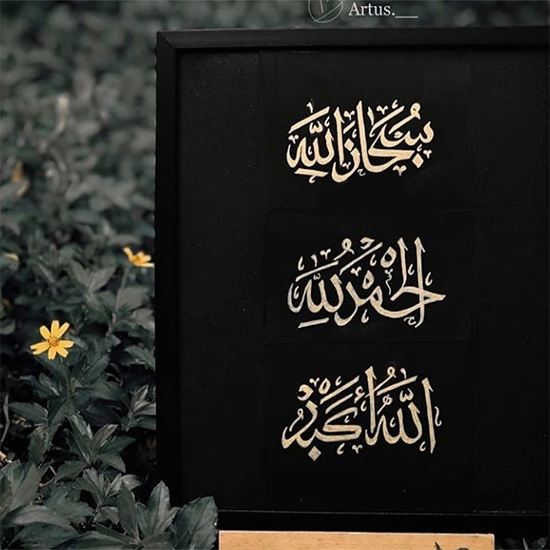 Artus.__
سُبْحَانَ اللَّه
الْحَمْدُ لِلَّه
اللَّهُ أَكْبَرُ